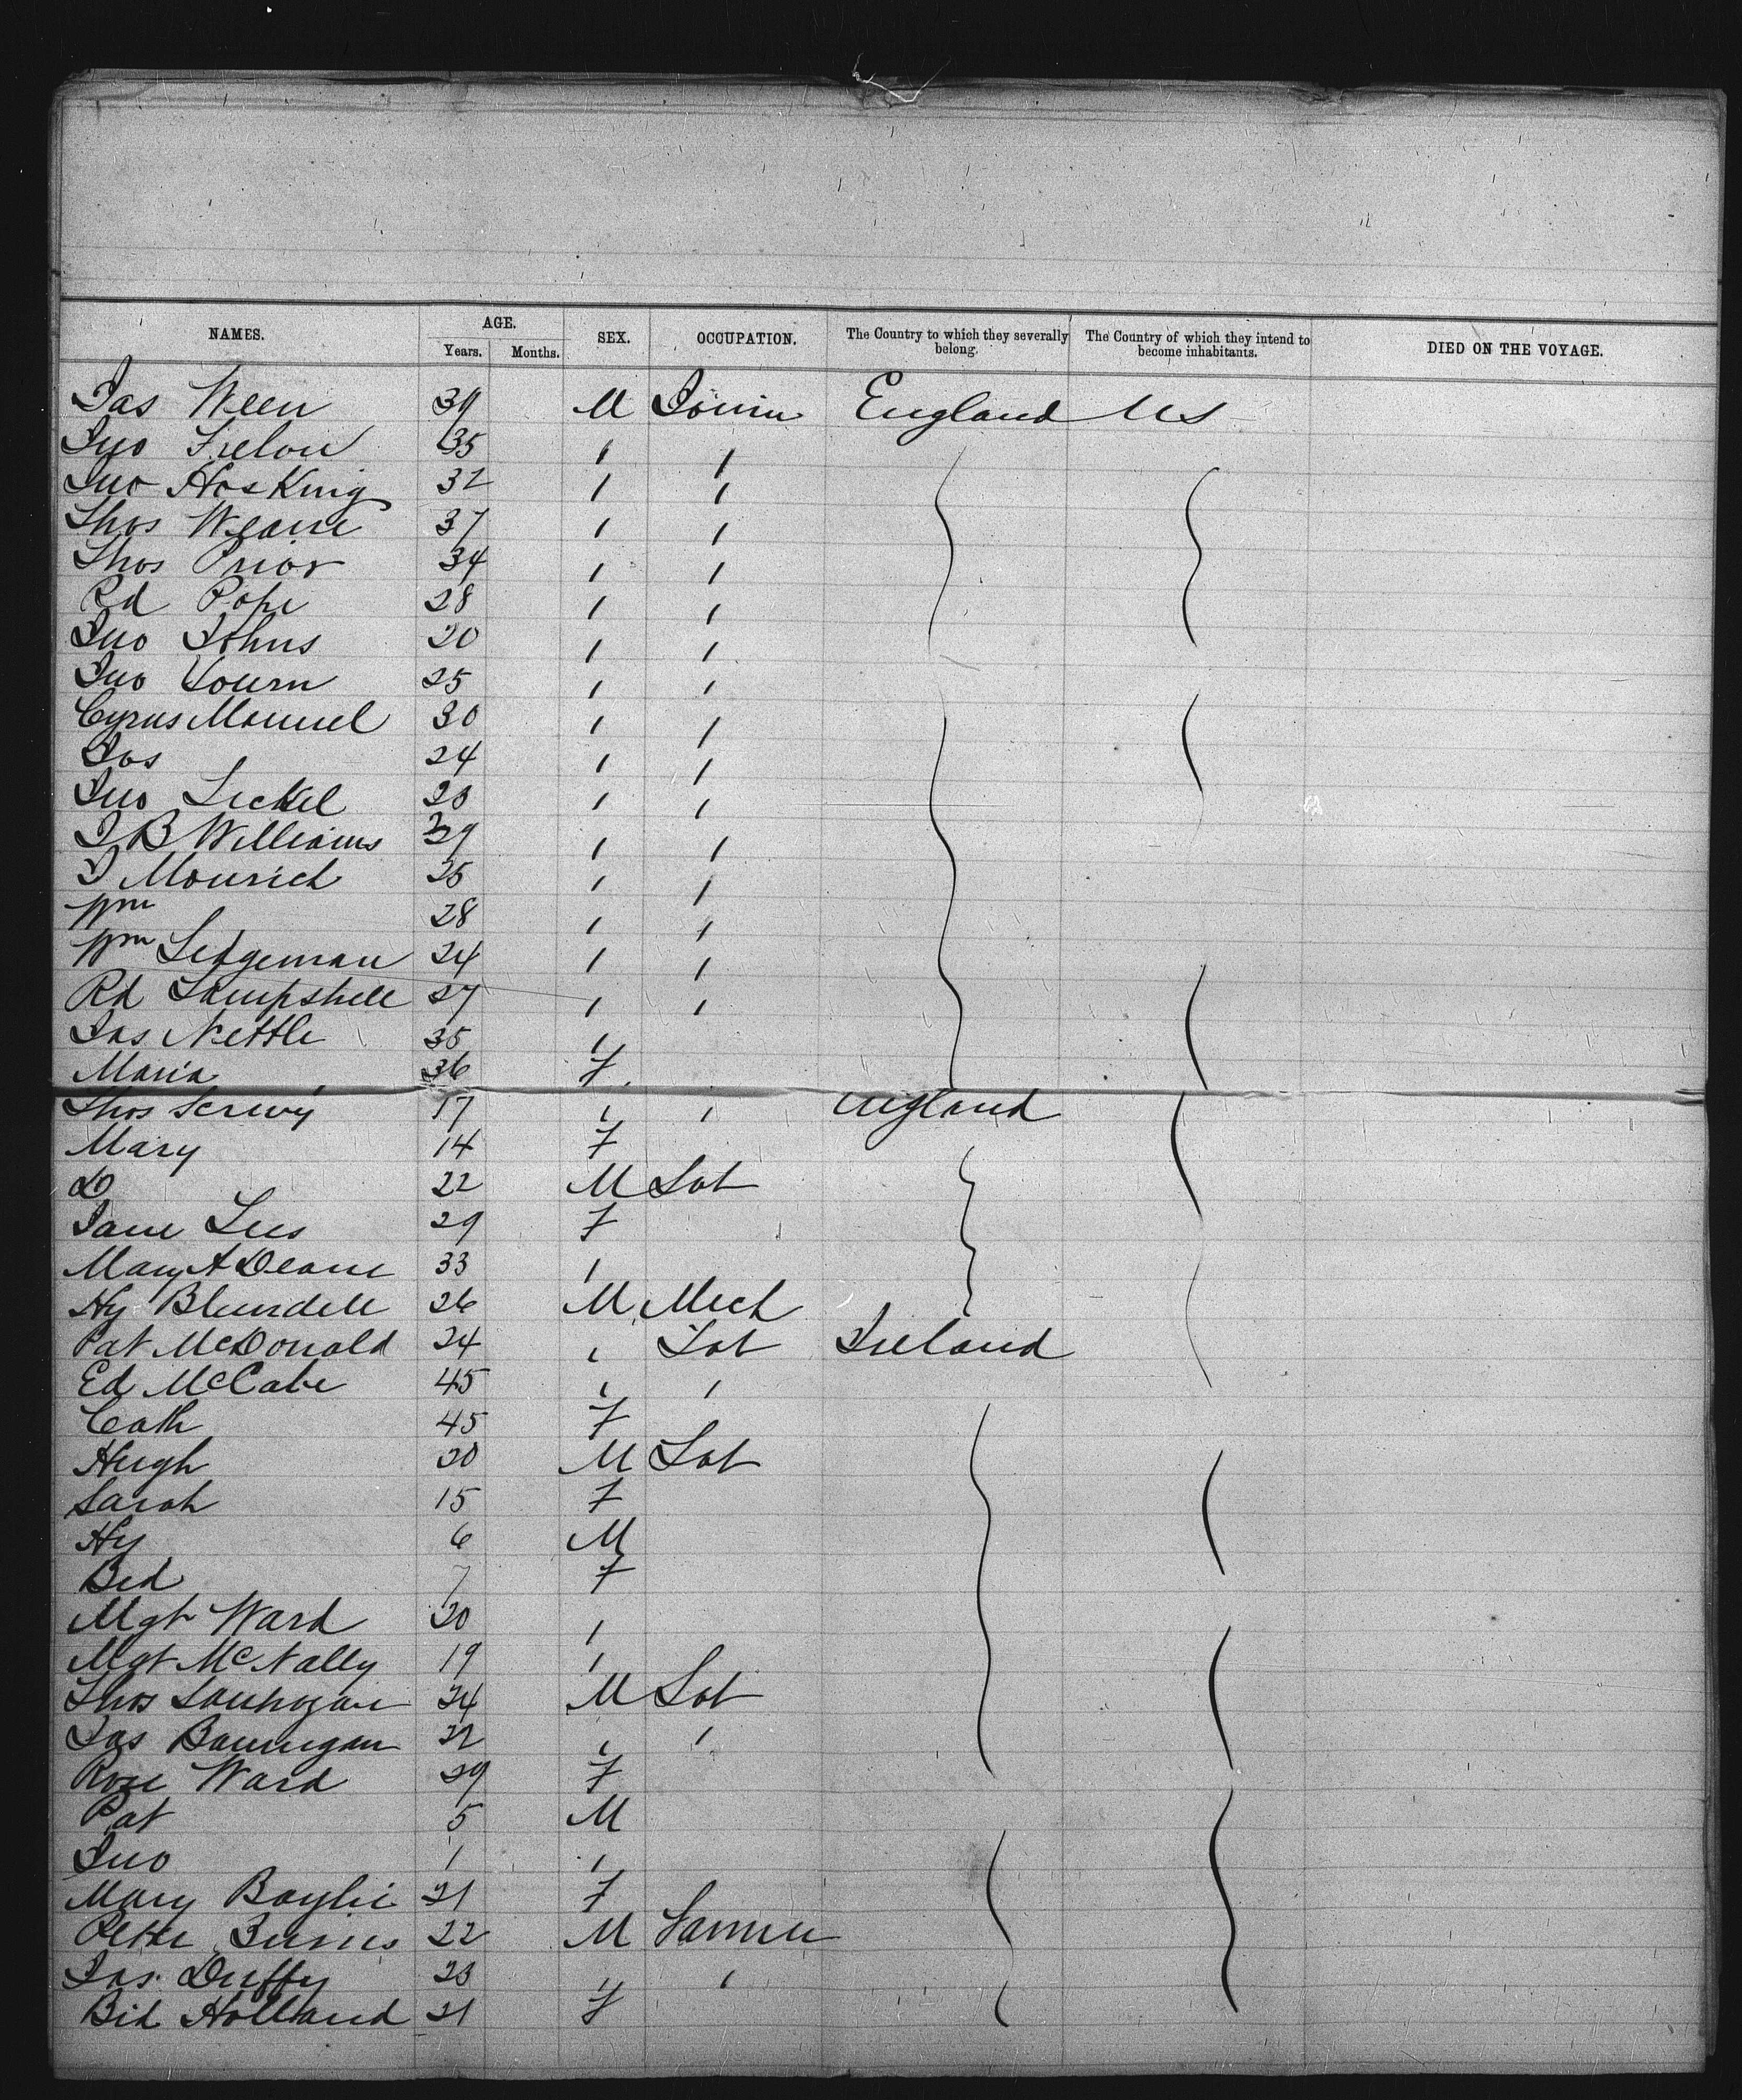 NAMES. AGE. Years. Months. SEX. OCCUPATION. The Country to which they severally belong. The Country of which they intend to become inhabitants. DIED ON THE VOYAGE.
Jas 39 M England US
Jno 35 " "
Jno Hosking 32 " "
Thos 37 " "
Thos Prior 34 " "
Rd Pope 28 " "
Jno Johns 20 " "
Jno 25 " "
Cyrus 30 " "
Jos 24 " "
Jno " "
J B Williams 39 " "
J 25 " "
Wm 28 " "
Wm 24 " "
Rd 27 " "
Jas Nettle 35 "
Maria 36 F
Thos 17 " " England
Mary 14 F
D 22 M Lab
Jane Lees 29 F
Mary A Deane 33 "
Hy Blundell 26 M Mech
Pat McDonald 24 " Lab Ireland
Ed McCabe 45 " "
Cath 45 F
Hugh 20 M Lab
Sarah 15 F
Hy 6 M
Bid 7 F
Mgt Ward 20 "
Mgt McNally 19 "
Thos 24 M Lab
Jas 22 " "
Rose Ward 29 F
Pat 5 M
Jno 1 "
Mary 21 F
22 M Farmer
Jas. Duffy 23 " "
Bid Holland 21 F